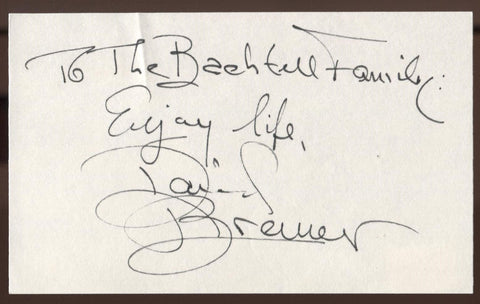 To The Bachtell Family:
Enjoy life,
David
Bremer